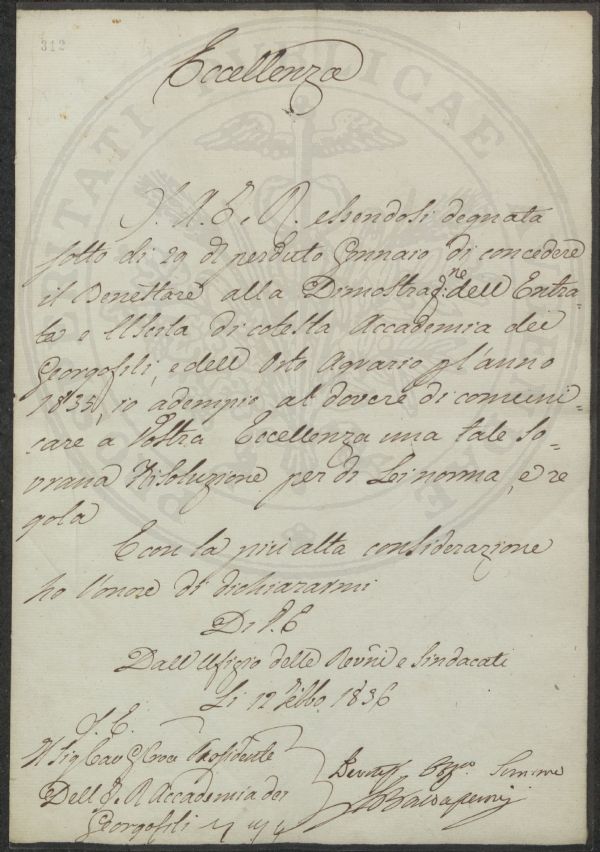 312
Eccellenza
S. A. I. e R. essendosi degnata
sotto di 29 di perduto Gennaio, di concedere
il Benestare alla Dimostraz:ne dell'Entra-
ta e Uscita di cotesta Accademia dei
Georgofili, e dell'Orto Agrario pl'anno
1835, io adempio al dovere di comuni-
care a Vostra Eccellenza una tale So-
vrana Risoluzione per di Lei norma, e re
gola
E con la più alta considerazione
ho l'onore di dichiararmi
Di V. E
Dall'Ufizio delle Revni e Sindacati
Li 12 Febbo 1836
S. E.
Il Sig Cav Presidente
Dell'I. R Accademia dei
Georgofili